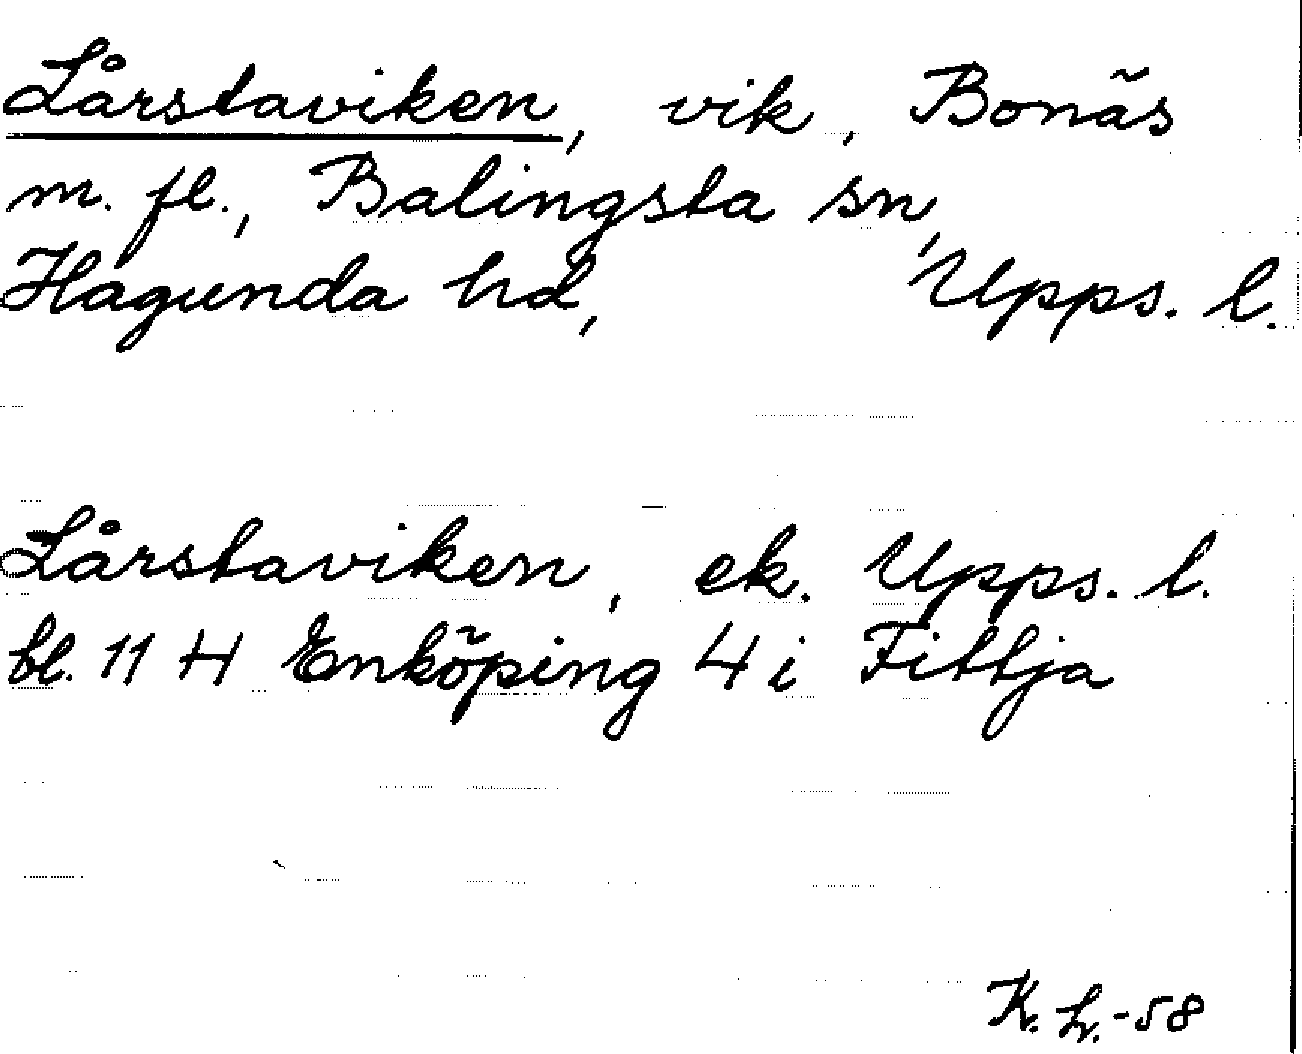 Lårstaviken, vik, Bonäs
m. fl., Balingsta sn,
Hagunda hd, Upps. l.
Lårstaviken, ek. Upps. l.
bl. 11 H Enköping 4 i Fittja
K. L. -58